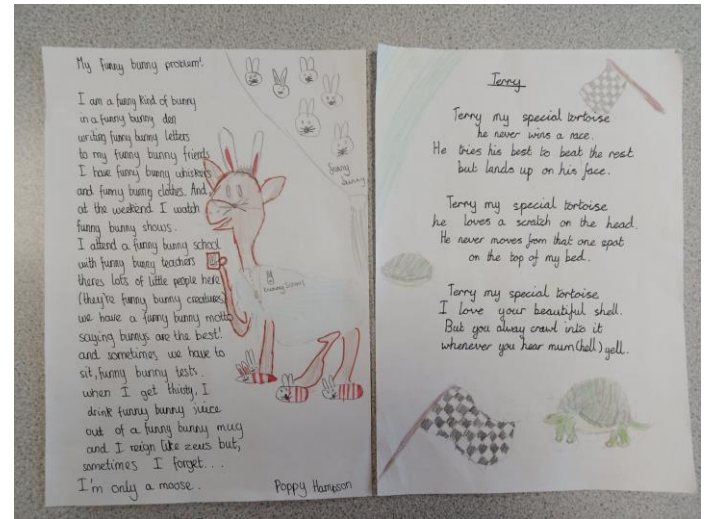 My funny bunny problem!
I am a funny kind of bunny
in a funny bunny den
writing funny bunny letters
to my funny bunny friends
I have funny bunny whiskers
and funny bunny clothes. And,
at the weekend I watch
funny bunny shows.
I attend a funny bunny school
with funny bunny teachers
theres lots of little people here
(they're funny bunny creatures)
we have a funny bunny motto
saying bunnys are the best!
and sometimes we have to
sit, funny bunny tests.
when I get thirsty, I
drink funny bunny juice
out of a funny bunny mug
and I reign like zeus but,
sometimes I forget...
I'm only a moose.
Poppy Hampson
funny
bunny
Terry
Terry my special tortoise
he never wins a race.
He tries his best to beat the rest
but lands up on his face.
Terry my special tortoise
he loves a scratch on the head.
He never moves from that one spot
on the top of my bed.
Terry my special tortoise
I love your beautiful shell.
But you alway crawl into it
whenever you hear mum (hell) yell.